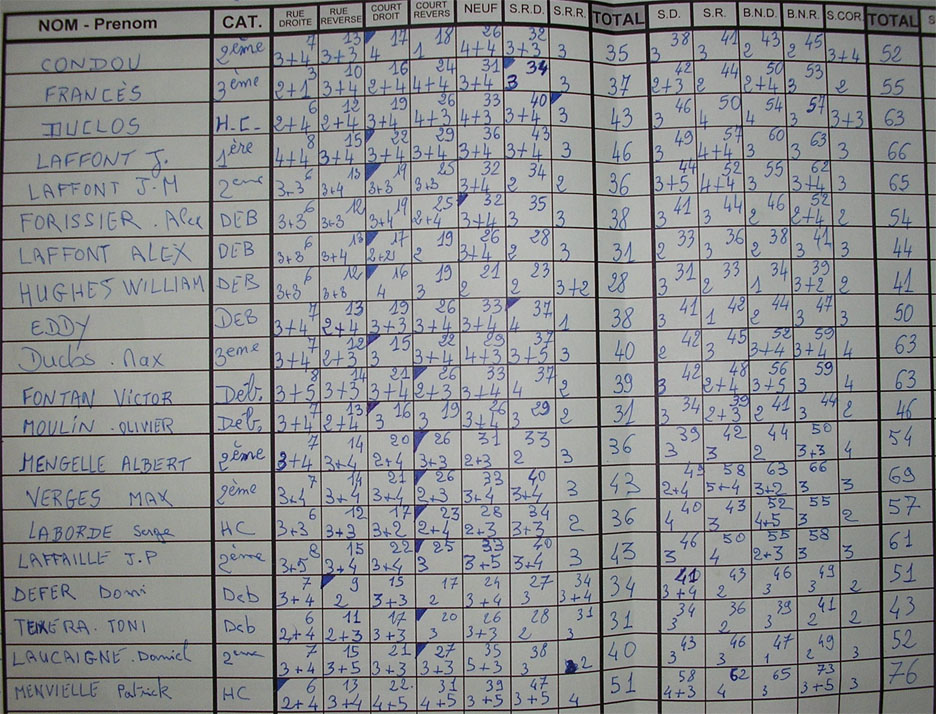 NOM - Prenom CAT. RUE DROITE RUE REVERSE COURT DROIT COURT REVERS NEUF S.R.D. S.R.R. TOTAL S.D. S.R. B.N.D. B.N.R. S.COR. TOTAL S
CONDOU 2ème 3+4 7 3+3 13 4 17 1 18 4+4 26 3+3 32 3 35 3 38 3 41 2 43 2 45 3+4 52
FRANCÈS 3ème 2+1 3 3+4 10 2+4 16 4+4 24 3+4 31 3 34 3 37 2+3 42 2 44 2+4 50 3 53 2 55
DUCLOS H.C. 2+4 6 2+4 12 3+4 19 4+3 26 4+3 33 3+4 40 3 43 3 46 4 50 4 54 3 57 3+3 63
LAFFONT J. 1ère 4+4 8 3+4 15 3+4 22 3+4 29 3+4 36 3+4 43 3 46 3 49 4+4 57 3 60 3 63 3 66
LAFFONT J-M 2ème 3+3 6 3+4 13 3+3 19 3+3 25 3+4 32 2 34 2 36 3+5 44 4+4 52 3 55 3+4 62 3 65
FORISSIER. DEB 3+3 6 3+3 12 3+4 19 2+4 25 3+4 32 3 35 3 38 3 41 3 44 2 46 2+4 52 2 54
LAFFONT ALEX DEB 3+3 6 3+4 13 2+2 17 2 19 3+4 26 2 28 3 31 2 33 3 36 2 38 3 41 3 44
HUGHES WILLIAM DEB 3+3 6 3+3 12 4 16 3 19 2 21 2 23 3+2 28 3 31 2 33 1 34 3+2 39 2 41
EDDY DEB 3+4 7 2+4 13 3+3 19 3+4 26 3+4 33 4 37 1 38 3 41 1 42 2 44 3 47 3 50
Duclos. Max 3eme 3+4 7 2+3 12 3 15 3+4 22 4+3 29 3+5 37 3 40 2 42 3 45 3+4 52 3+4 59 4 63
FONTAN VICTOR Déb. 3+5 8 3+3 14 3+4 21 2+3 26 3+4 33 4 37 2 39 3 42 2+4 48 3+5 56 3 59 4 63
MOULIN. OLIVIER Déb. 3+4 7 2+4 13 3 16 3 19 3+4 26 3 29 2 31 3 34 2+3 39 2 41 3 44 2 46
MENGELLE ALBERT 2ème 3+4 7 3+4 14 2+4 20 3+3 26 2+3 31 2 33 3 36 3 39 3 42 2 44 3+3 50 4 54
VERGES MAX 2ème 3+4 7 3+4 14 3+4 21 2+3 26 3+4 33 3+4 40 3 43 2+4 49 5+4 58 3+2 63 3 66 3 69
LABORDE Serge HC 3+3 6 3+3 12 3+2 17 2+4 23 2+3 28 3+3 34 2 36 4 40 3 43 4+5 52 3 55 2 57
LAFFAILLE J.P 2ème 3+5 8 3+4 15 3+4 22 3 25 3+5 33 3+4 40 3 43 3 46 4 50 2+3 55 3 58 3 61
DEFER Domi Deb 3+4 7 2 9 3+3 15 2 17 3+4 24 3 27 3+4 34 34 3+4 41 2 43 3 46 3 49 2 51
TEIXERA. TONI Deb 2+4 6 2+3 11 3+3 17 3 20 3+3 26 2 28 3 31 31 3 34 2 36 3 39 2 41 2 43
LAUCAIGNE. Daniel 2eme 3+4 7 3+5 15 3+3 21 3+3 27 5+3 35 3 38 2 40 3 43 3 46 1 47 2 49 3 52
MENVIELLE Patrick HC 2+4 6 3+4 13 4+5 22 4+5 31 3+5 39 3+5 47 4 51 4+3 58 4 62 3 65 3+5 73 3 76